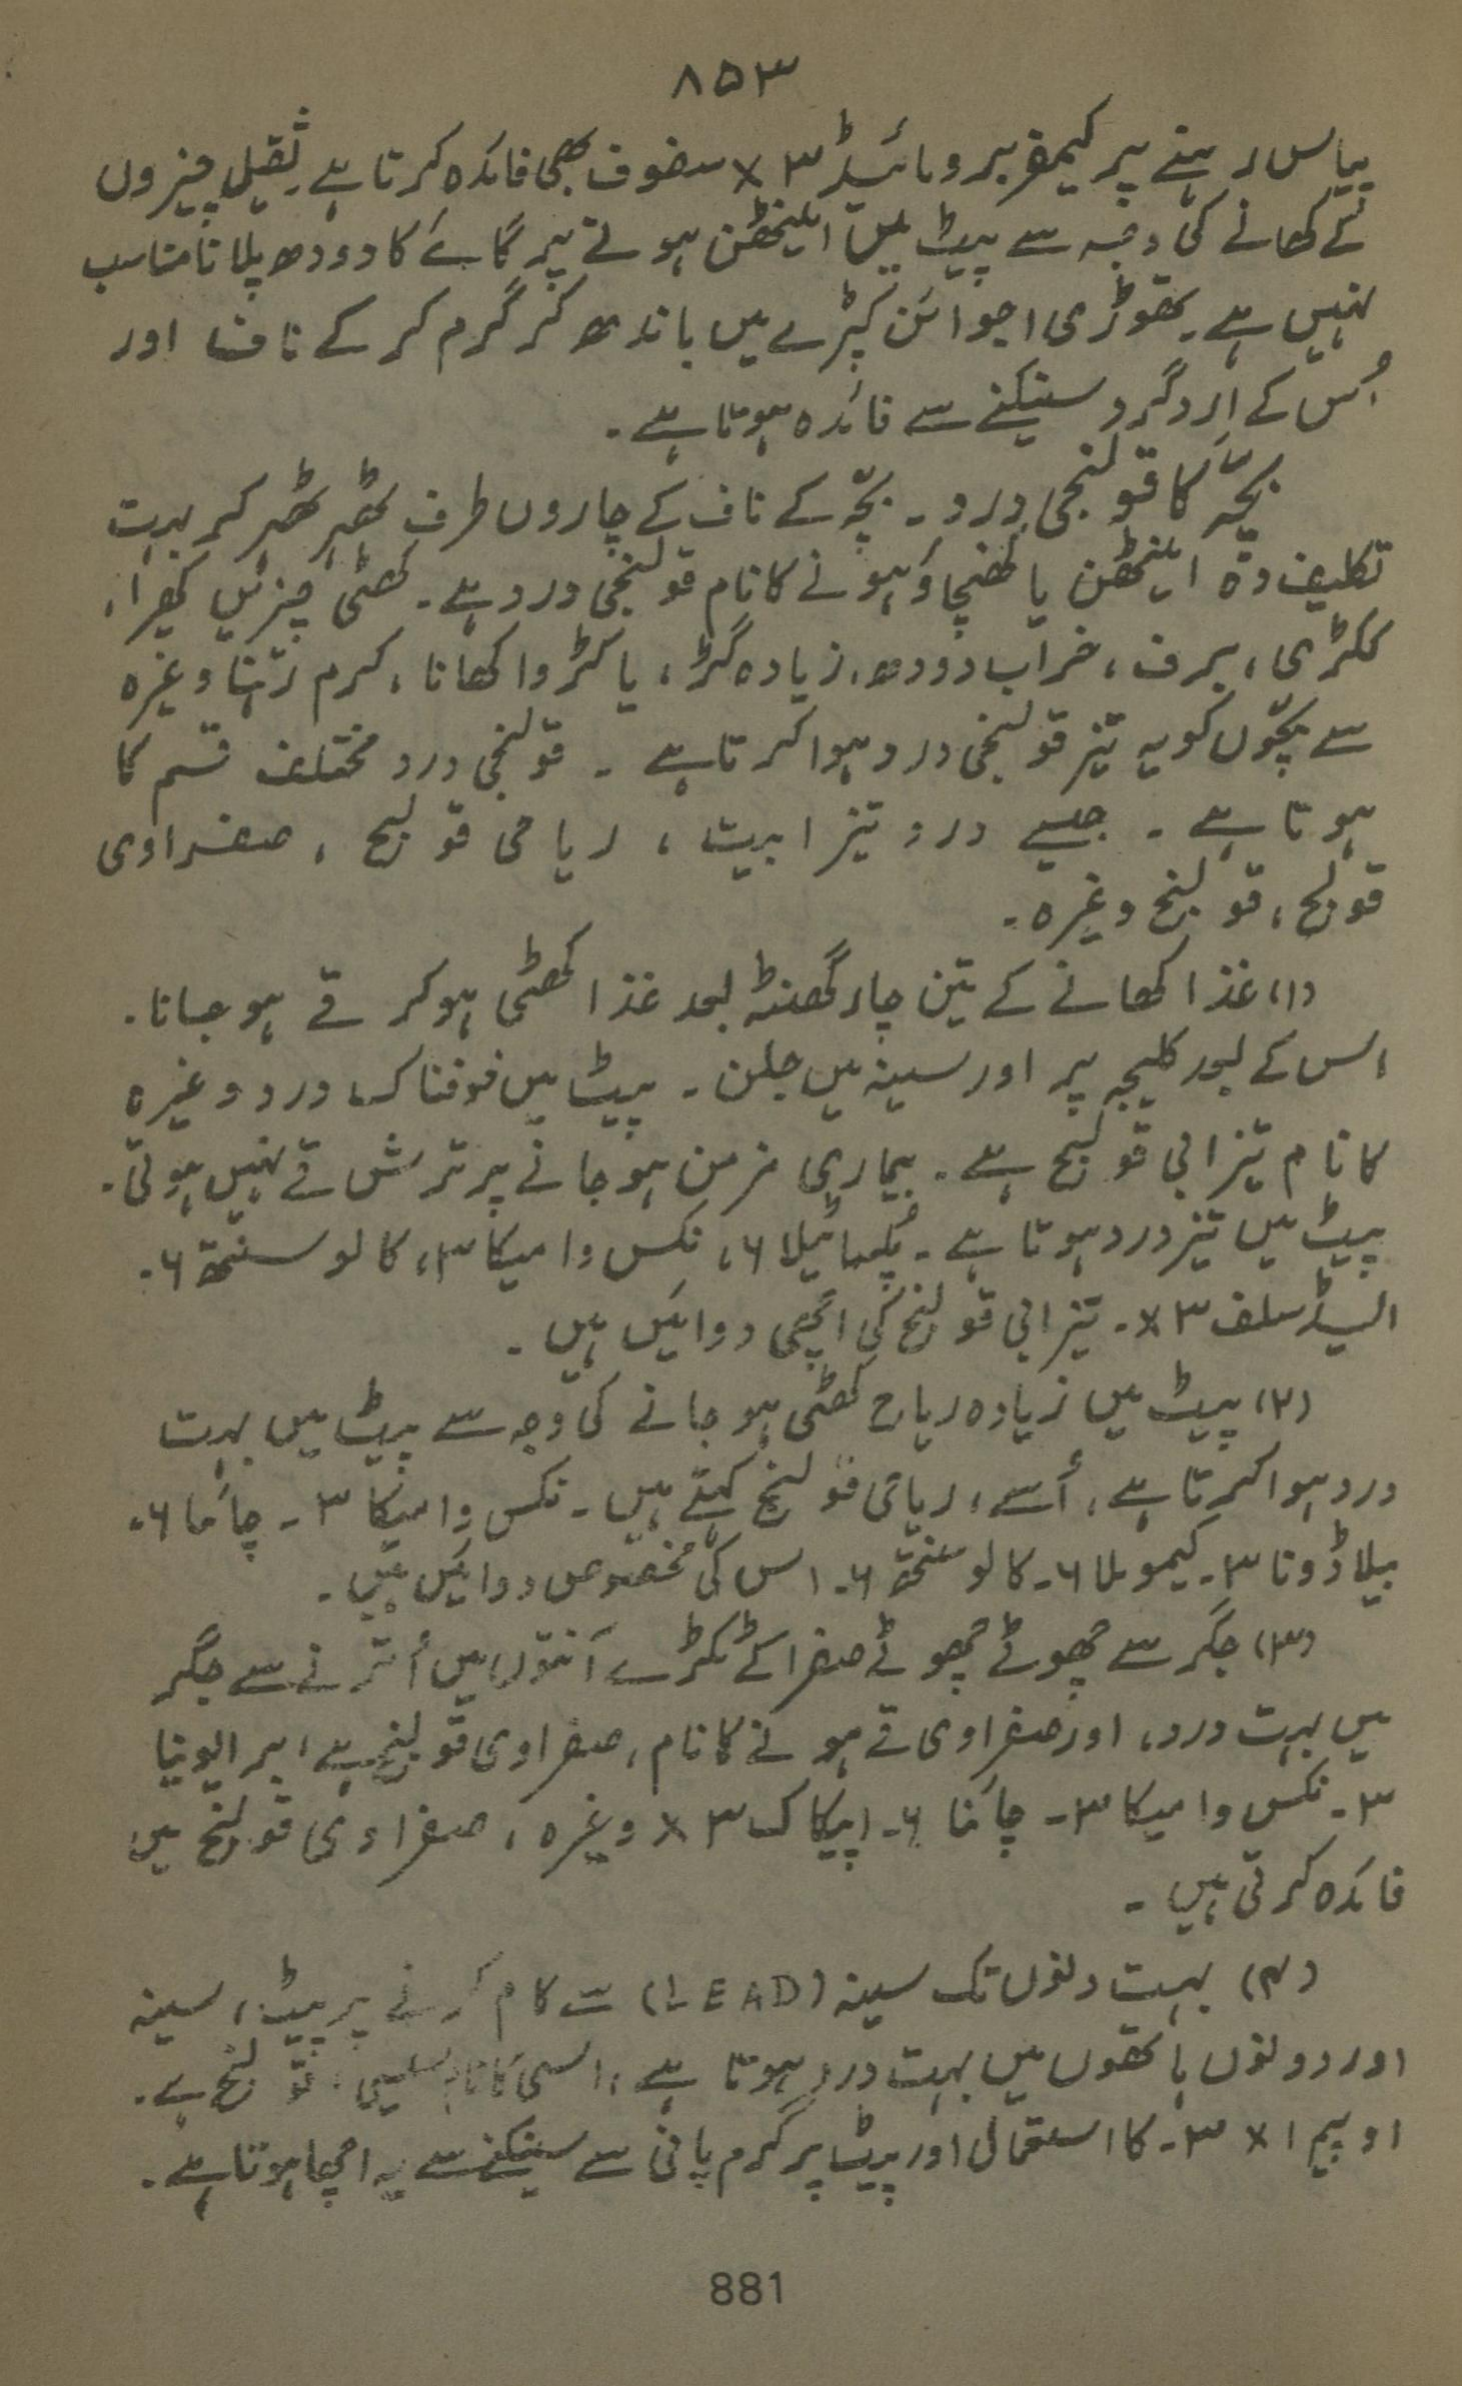 ۸۵۳
پیاس رہنے پر کیمفر برومائیڈ ۳ x سفوف بھی فائدہ کرتا ہے۔ ثقیل چیزوں
کے کھانے کی وجہ سے پیٹ میں اینٹھن ہونے پر گائے کا دودھ پلانا مناسب
نہیں ہے۔ تھوڑی اجوائن کپڑے میں باندھ کر گرم کر کے ناف اور
اُس کے اِردگرد سینکنے سے فائدہ ہوتا ہے۔
بچّہ کا قولنجی درد۔ بچّہ کے ناف کے چاروں طرف ٹھہر ٹھہر کر بہت
تکلیف دہ اینٹھن یا کھنچاؤ ہونے کا نام قولنجی درد ہے۔ کھٹی چیزیں کھیرا،
ککڑی، برف، خراب دودھ، زیادہ گڑ، یا کڑوا کھانا، کرم رہنا وغیرہ
سے بچّوں کو یہ تیز قولنجی درد ہوا کرتا ہے۔ قولنجی درد مختلف قسم کا
ہوتا ہے۔ جیسے درد تیزابیت، ریاحی قولنج، صفراوی
قولنج، قولنج وغیرہ۔
(۱) غذا کھانے کے تین چار گھنٹہ بعد غذا کھٹی ہو کر قے ہو جانا۔
اس کے بعد کلیجہ پر اور سینہ میں جلن۔ پیٹ میں خوفناک درد وغیرہ
کا نام تیزابی قولنج ہے۔ بیماری مزمن ہو جانے پر ترش قے نہیں ہوتی۔
پیٹ میں تیز درد ہوتا ہے۔ پلساٹیلا ۶، نکس وامیکا ۳، کالوسنتھ ۶۔
ایسڈ سلف ۳ x۔ تیزابی قولنج کی اچھی دوائیں ہیں۔
(۲) پیٹ میں زیادہ ریاح کھٹی ہو جانے کی وجہ سے پیٹ میں بہت
درد ہوا کرتا ہے، اُسے، ریاحی قولنج کہتے ہیں۔ نکس وامیکا ۳۔ چائنا ۶۔
بیلاڈونا ۳۔ کیموملا ۶۔ کالوسنتھ ۶۔ اس کی مخصوص دوائیں ہیں۔
(۳) جگر سے چھوٹے چھوٹے صفرا کے ٹکڑے آنتوں میں اُترنے سے جگر
میں بہت درد، اور صفراوی قے ہونے کا نام، صفراوی قولنج ہے، برایونیا
۳۔ نکس وامیکا ۳۔ چائنا ۶۔ اپیکاک ۳ x وغیرہ، صفراوی قولنج میں
فائدہ کرتی ہیں۔
(۴) بہت دنوں تک سیسہ (LEAD) سے کام کرنے پر پیٹ، سینہ
اور دونوں ہاتھوں میں بہت درد ہوتا ہے، اسی کا نام قولنج ہے۔
اوپیم ۱ x ۳۔ کا استعمال اور پیٹ پر گرم پانی سے سینکنے سے یہ اچھا ہوتا ہے۔
881